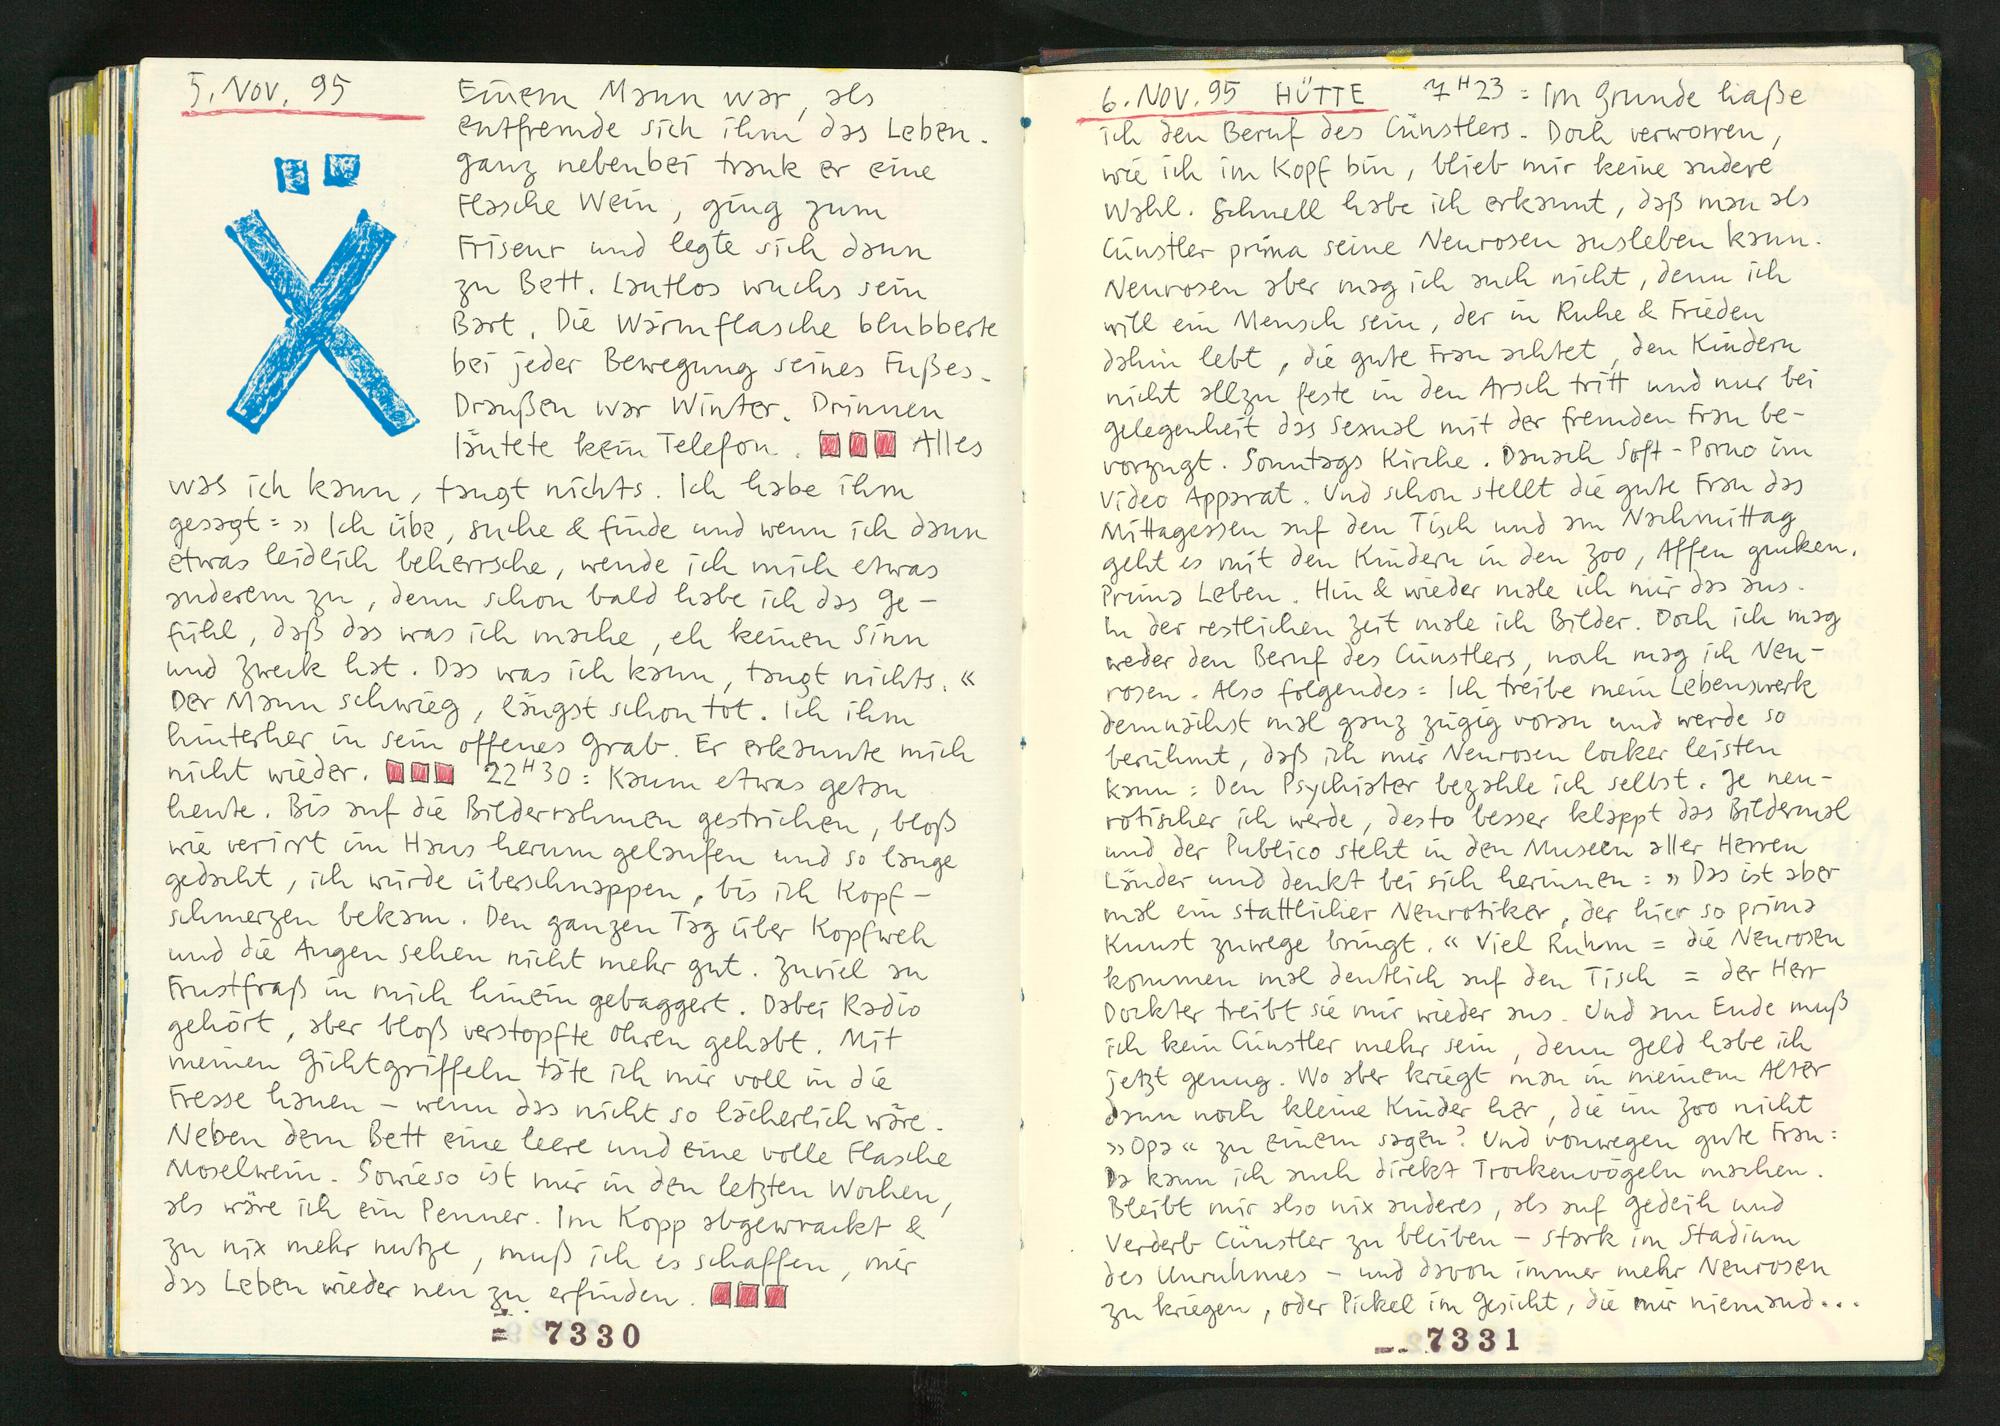 5. Nov. 95
Ẍ
Einem Mann war, als
entfremde sich ihm das Leben.
ganz nebenbei trank er eine
Flasche Wein, ging zum
Friseur und legte sich dann
zu Bett. Lautlos wuchs sein
Bart. Die Wärmflasche blubberte
bei jeder Bewegung seines Fußes.
Draußen war Winter. Drinnen
läutete kein Telefon. Alles
was ich kann, taugt nichts. Ich habe ihm
gesagt: » Ich übe, suche & finde und wenn ich dann
etwas leidlich beherrsche, wende ich mich etwas
anderem zu, denn schon bald habe ich das Ge-
fühl, daß das was ich mache, eh keinen Sinn
und Zweck hat. Das was ich kann, taugt nichts. «
Der Mann schwieg, längst schon tot. Ich ihm
hinterher in sein offenes Grab. Er erkannte mich
nicht wieder. 22ᴴ30 = Kaum etwas getan
heute. Bis auf die Bilderrahmen gestrichen, bloß
wie verirrt im Haus herum gelaufen und so lange
gedacht, ich würde überschnappen, bis ich Kopf-
schmerzen bekam. Den ganzen Tag über Kopfweh
und die Augen sehen nicht mehr gut. Zuviel an
Frustfraß in mich hinein gebaggert. Dabei Radio
gehört, aber bloß verstopfte Ohren gehabt. Mit
meinen Gichtgriffeln täte ich mir voll in die
Fresse hauen – wenn das nicht so lächerlich wäre.
Neben dem Bett eine leere und eine volle Flasche
Moselwein. Sowieso ist mir in den letzten Wochen,
als wäre ich ein Penner. Im Kopp abgewrackt &
zu nix mehr nutze, muß ich es schaffen, mir
das Leben wieder neu zu erfinden.
= 7330
6. Nov. 95 HÜTTE 7ᴴ23 = Im Grunde haße
ich den Beruf des Cünstlers. Doch verworren,
wie ich im Kopf bin, blieb mir keine andere
Wahl. Schnell habe ich erkannt, daß man als
Cünstler prima seine Neurosen ausleben kann.
Neurosen aber mag ich auch nicht, denn ich
will ein Mensch sein, der in Ruhe & Frieden
dahin lebt, die gute Frau achtet, den Kindern
nicht allzu feste in den Arsch tritt und nur bei
gelegenheit das Sexual mit der fremden Frau be-
vorzugt. Sonntags Kirche. Danach Soft-Porno im
Video Apparat. Und schon stellt die gute Frau das
Mittagessen auf den Tisch und am Nachmittag
geht es mit den Kindern in den Zoo, Affen gucken.
Prima Leben. Hin & wieder male ich mir das aus.
In der restlichen Zeit male ich Bilder. Doch ich mag
weder den Beruf des Cünstlers, noch mag ich Neu-
rosen. Also folgendes = Ich treibe mein Lebenswerk
demnächst mal ganz zügig voran und werde so
berühmt, daß ich mir Neurosen locker leisten
kann = Den Psychiater bezahle ich selbst. Je neu-
rotischer ich werde, desto besser klappt das Bildermal
und der Publico steht in den Museen aller Herren
Länder und denkt bei sich herinnen = » Das ist aber
mal ein stattlicher Neurotiker, der hier so prima
Kunst zuwege bringt. « Viel Ruhm = die Neurosen
kommen mal deutlich auf den Tisch = der Herr
Dockter treibt sie mir wieder aus. Und am Ende muß
ich kein Cünstler mehr sein, denn Geld habe ich
jetzt genug. Wo aber kriegt man in meinem Alter
dann noch kleine Kinder her, die im Zoo nicht
»Opa« zu einem sagen? Und vonwegen gute Frau:
Da kann ich auch direkt Trockenvögeln machen.
Bleibt mir also nix anderes, als auf gedeih und
Verderb Cünstler zu bleiben – stark im Stadium
des Unruhmes – und davon immer mehr Neurosen
zu kriegen, oder Pickel im Gesicht, die mir niemand...
7331